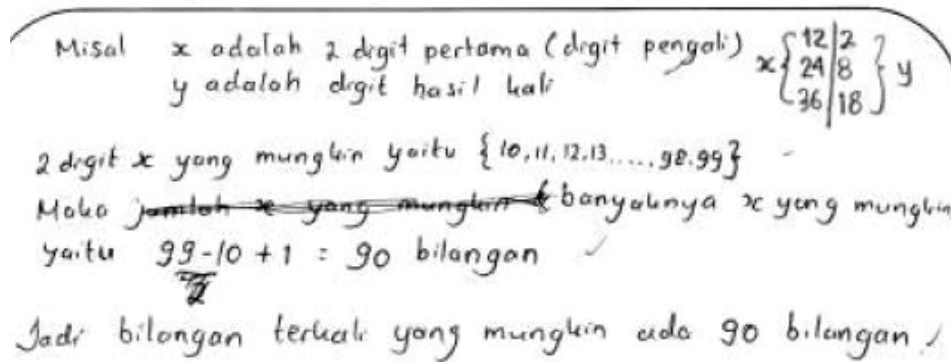 Misal x adalah 2 digit pertama (digit pengali)
y adalah digit hasil kali
x { 12 | 2
24 | 8 } y
36 | 18
2 digit x yang mungkin yaitu {10, 11, 12, 13, ..., 98, 99}
Maka jumlah x yang mungkin banyaknya x yang mungkin
yaitu 99 - 10 + 1 = 90 bilangan ✓
Jadi bilangan terkali yang mungkin ada 90 bilangan